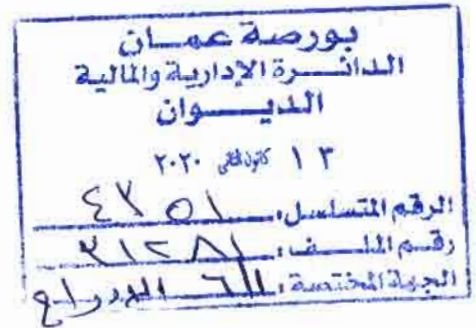 بورصة عمان
الدائرة الإدارية والمالية
الديوان
١٣ كانون الثاني ٢٠٢٠
الرقم المتسلسل:
رقم الملف: ٣١٢٨١
الجهة المختصة: الادراج